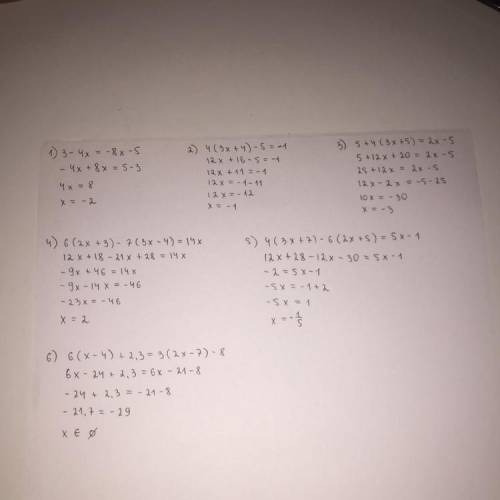 1) 3 - 4x = -8x - 5
- 4x + 8x = 5 - 3
4x = 8
x = -2
2) 4(3x + 4) - 5 = -1
12x + 16 - 5 = -1
12x + 11 = -1
12x = -1 - 11
12x = -12
x = -1
3) 5 + 4(3x + 5) = 2x - 5
5 + 12x + 20 = 2x - 5
25 + 12x = 2x - 5
12x - 2x = -5 - 25
10x = -30
x = -3
4) 6(2x + 3) - 7(3x - 4) = 14x
12x + 18 - 21x + 28 = 14x
-9x + 46 = 14x
-9x - 14x = -46
-23x = -46
x = 2
5) 4(3x + 7) - 6(2x + 5) = 5x - 1
12x + 28 - 12x - 30 = 5x - 1
-2 = 5x - 1
-5x = -1 + 2
-5x = 1
x = -1/5
6) 6(x - 4) + 2,3 = 3(2x - 7) - 8
6x - 24 + 2,3 = 6x - 21 - 8
-24 + 2,3 = -21 - 8
-21,7 = -29
x ∈ ∅